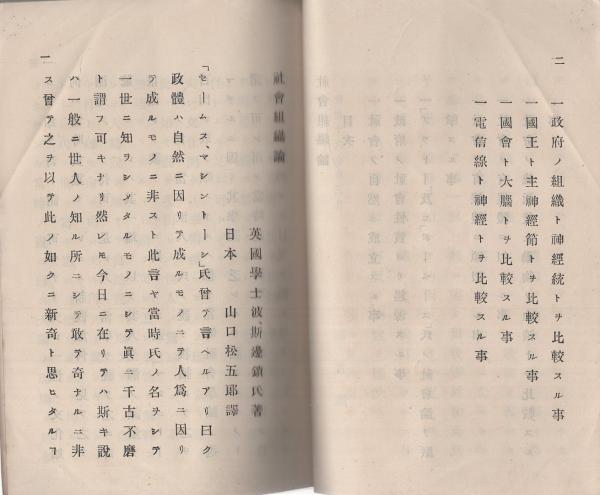 二
一政府ノ組織ト神經統トヲ比較スル事
一國王ト主神經節トヲ比較スル事
一國會ト大腦トヲ比較スル事
一電信線ト神經トヲ比較スル事
社會組織論
英國學士波・斯邊鎖氏著
日本 山口松五郎譯
「セームス、マシントーシ」氏曾テ言ヘルアリ曰ク
政體ハ自然ニ因リテ成ルモノニテ人爲ニ因リ
テ成ルモノニ非スト此言ヤ當時氏ノ名ヲシテ
一世ニ知ヲシメタルモノニシテ眞ニ千古不磨
ト謂フ可キナリ然レモ今日ニ在リテハ斯キ說
ハ一般ニ世人ノ知ル所ニシテ敢テ奇ナルニ非
ス曾テ之ヲ以テ此ノ如クニ新奇ト思ヒタルヿ
一